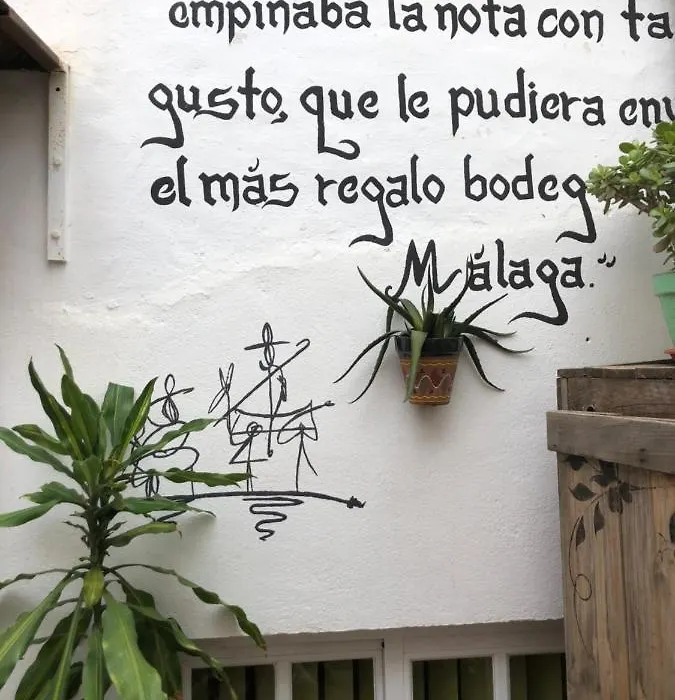 empinaba la nota con ta
gusto, que le pudiera env
el más regalo bodeg
Málaga."